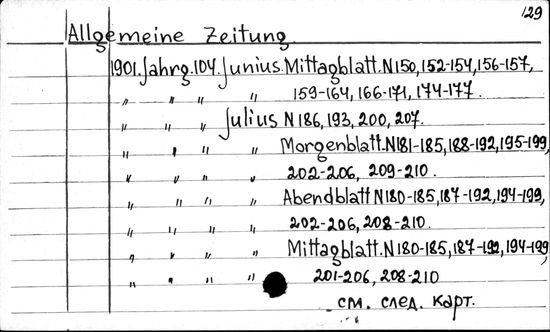 129
Allgemeine Zeitung.
1901. Jahrg. 104. Junius. Mittagblatt. N 150, 152-154, 156-157,
" " " " 159-164, 166-171, 174-177.
" " " Julius N 186, 193, 200, 207.
" " " " Morgenblatt. N 181-185, 188-192, 195-199,
" " " " 202-206, 209-210.
" " " " Abendblatt N 180-185, 187-192, 194-199,
" " " " 202-206, 208-210.
" " " " Mittagblatt. N 180-185, 187-192, 194-199,
" " " " 201-206, 208-210
см. след. карт.